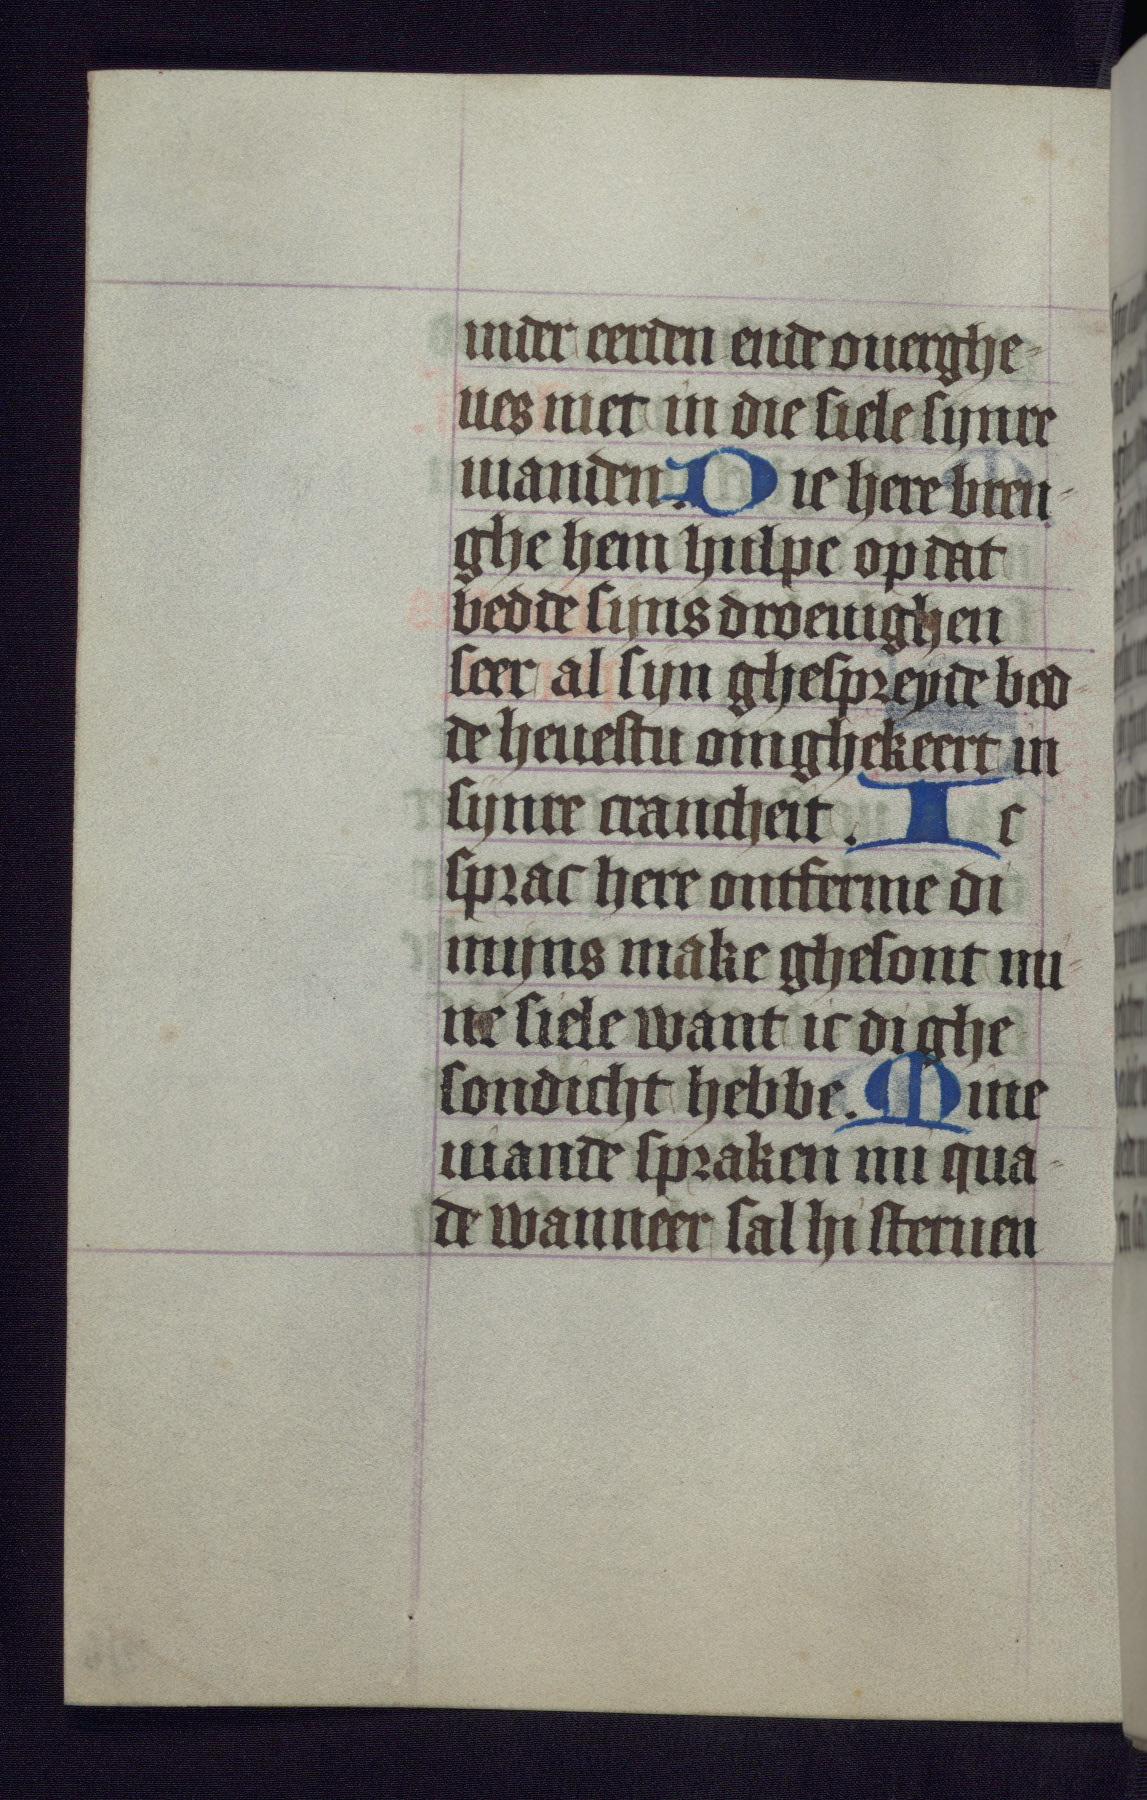 inder eerden ende ouerghe-
ues niet in die siele synre
uianden. Die here bren-
ghe hem hulpe op dat
bedde sijns droeuighen
seer al sijn ghespreyde bed-
de heuestu omghekeert in
sijnre crancheit. Ic
sprac here ontferme di
mijns make ghesont mi-
ne siele want ic di ghe
sondicht hebbe. Mine
uiande spraken mi qua-
de wanneer sal hi steruen